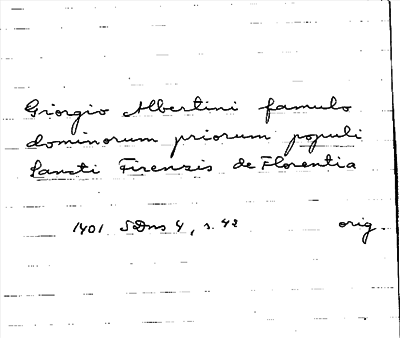 Giorgio Albertini famulo
dominorum priorum populi
Sancti Firenzis de Florentia
1401 SDns 4, s. 42 orig.